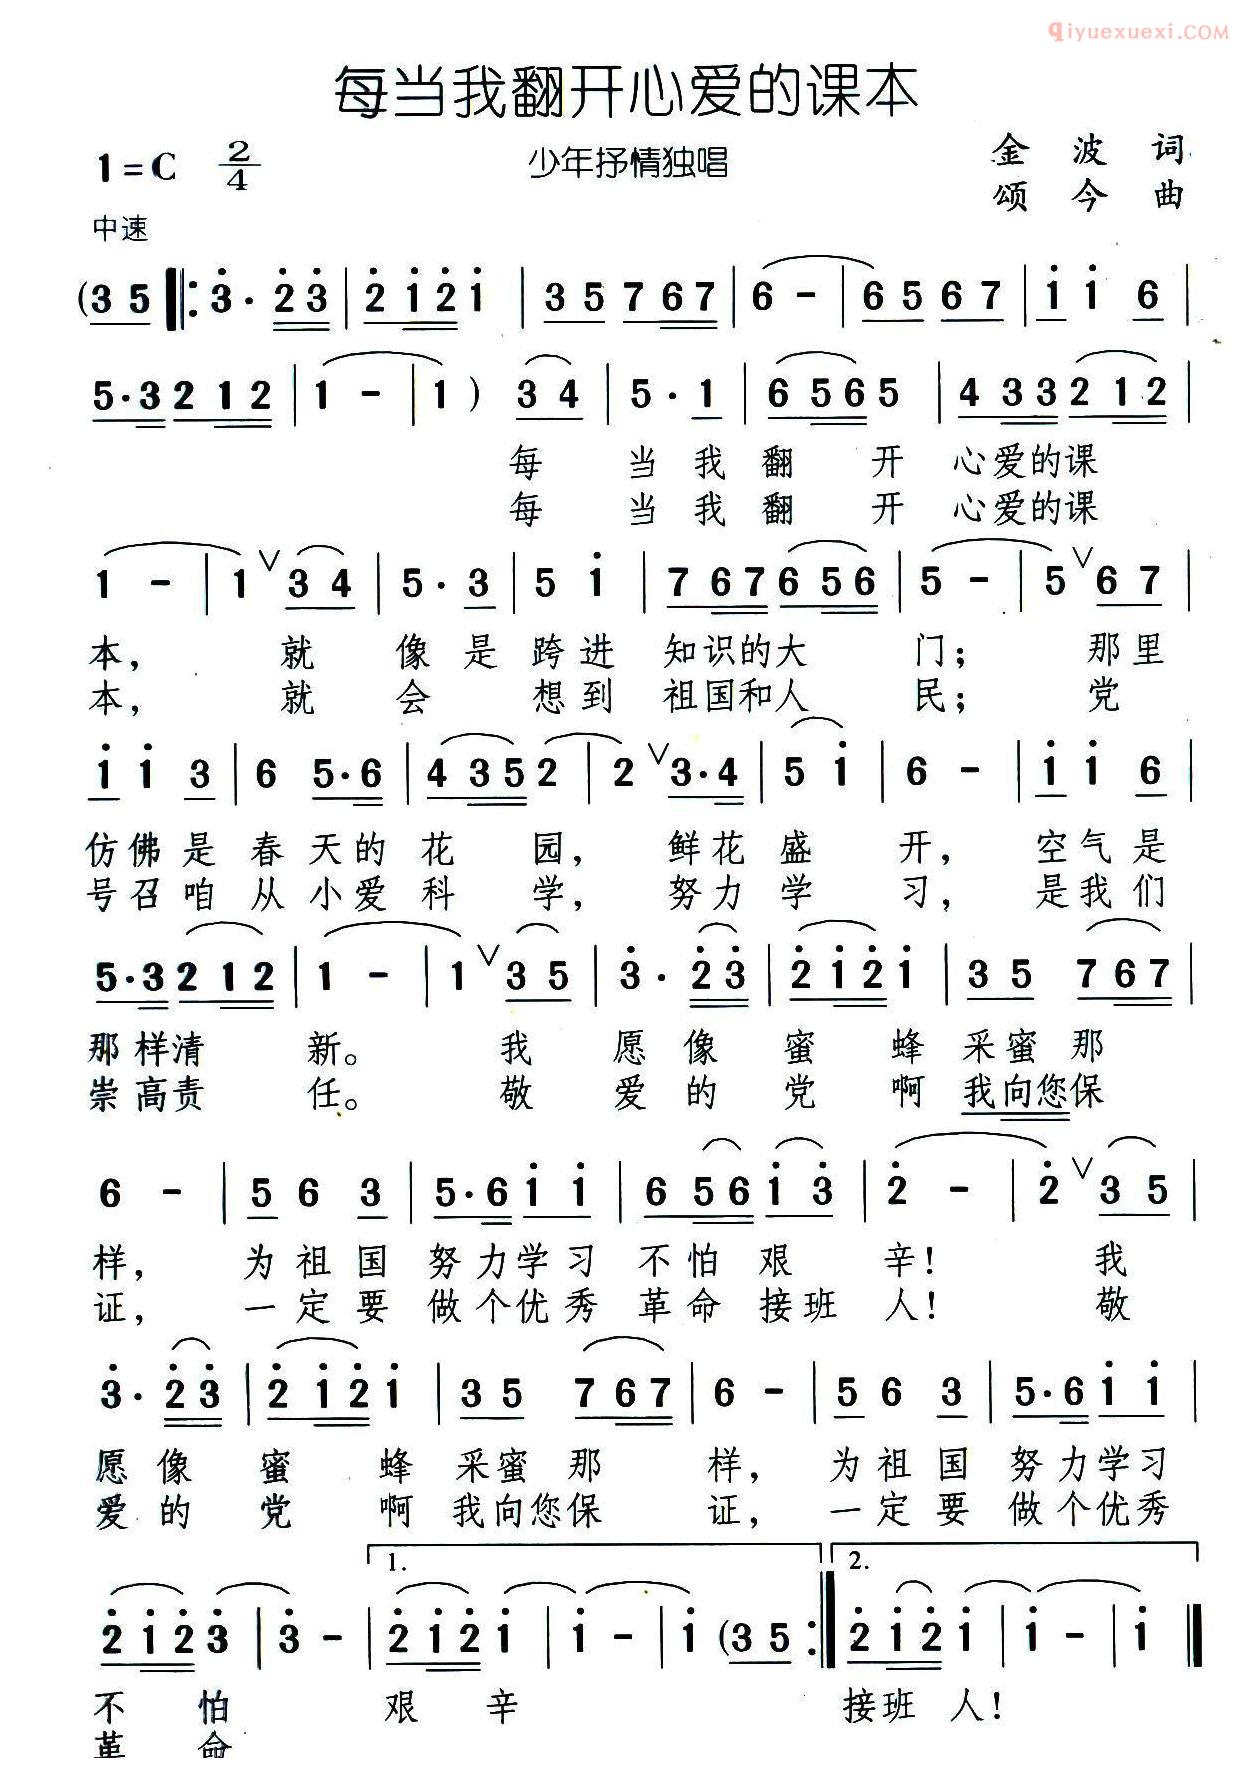 qiyuexuexi.COM
每当我翻开心爱的课本
1=C 2/4 少年抒情独唱 金波 词
颂今 曲
中速
(3 5 ‖: 3̇· 2̇ 3̇ | 2̇ 1̇ 2̇ 1̇ | 3 5 7 6 7 | 6 - | 6 5 6 7 | 1̇ 1̇ 6 |
5·3 2 1 2 | 1 - | 1 ) 3 4 | 5· 1 | 6 5 6 5 | 4 3 3 2 1 2 |
每 当 我 翻 开 心爱的课
每 当 我 翻 开 心爱的课
1 - | 1 ∨ 3 4 | 5· 3 | 5 1̇ | 7 6 7 6 5 6 | 5 - | 5 ∨ 6 7 |
本, 就 像 是 跨 进 知识的大 门; 那里
本, 就 会 想到 祖国和人 民; 党
1̇ 1̇ 3 | 6 5·6 | 4 3 5 2 | 2 ∨ 3·4 | 5 1̇ | 6 - | 1̇ 1̇ 6 |
仿佛是 春 天的 花 园, 鲜花 盛 开, 空气是
号召咱 从 小爱 科 学, 努力 学 习, 是我们
5·3 2 1 2 | 1 - | 1 ∨ 3 5 | 3̇· 2̇ 3̇ | 2̇ 1̇ 2̇ 1̇ | 3 5 7 6 7 |
那样清 新。 我 愿 像 蜜 蜂 采蜜 那
崇高责 任。 敬 爱 的 党 啊 我向您保
6 - | 5 6 3 | 5·6 1̇ 1̇ | 6 5 6 1̇ 3̇ | 2̇ - | 2̇ ∨ 3 5 |
样, 为 祖 国 努力学习 不怕 艰 辛! 我
证, 一 定 要 做个优秀 革命 接班 人! 敬
3̇· 2̇ 3̇ | 2̇ 1̇ 2̇ 1̇ | 3 5 7 6 7 | 6 - | 5 6 3 | 5·6 1̇ 1̇ |
愿 像 蜜 蜂 采蜜 那 样, 为 祖 国 努力学习
爱 的 党 啊 我向您保 证, 一 定 要 做个优秀
1. 2.
2̇ 1̇ 2̇ 3̇ | 3̇ - | 2̇ 1̇ 2̇ 1̇ | 1̇ - | 1̇ (3 5 :‖ 2̇ 1̇ 2̇ 1̇ | 1̇ - | 1̇ ‖
不 怕 艰 辛 接班 人!
革 命